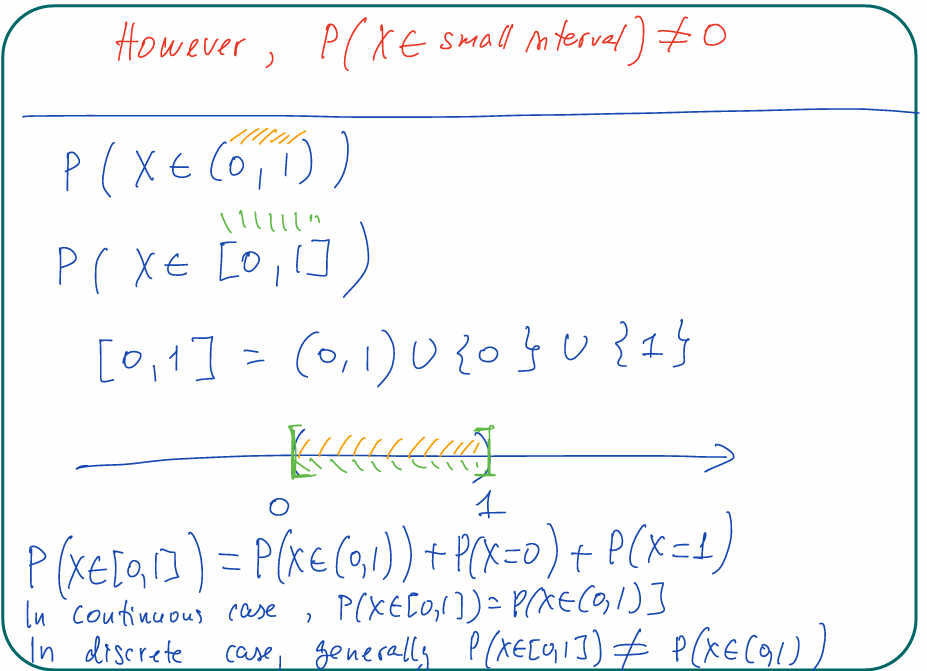 However, P(X∈ small interval) ≠ 0
P(X∈(0,1))
P(X∈[0,1])
[0,1] = (0,1)∪{0}∪{1}
0 1
P(X∈[0,1]) = P(X∈(0,1)) + P(X=0) + P(X=1)
In continuous case, P(X∈[0,1]) = P(X∈(0,1)]
In discrete case, generally P(X∈[0,1]) ≠ P(X∈(0,1))